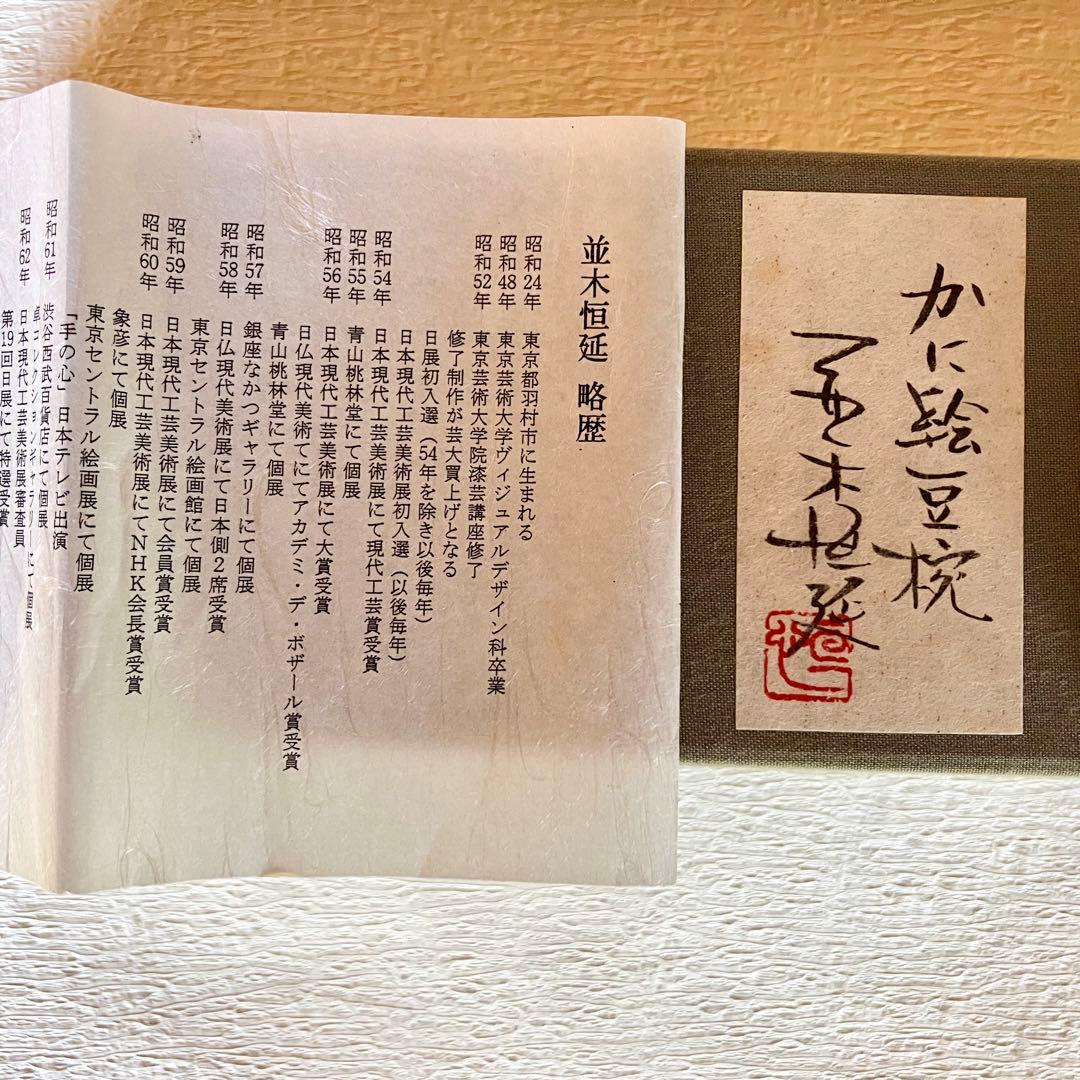 かに絵豆椀
並木恒延
並木恒延 略歴
昭和24年 東京都羽村市に生まれる
昭和48年 東京芸術大学ヴィジュアルデザイン科卒業
昭和52年 東京芸術大学院漆芸講座修了
修了制作が芸大買上げとなる
日展初入選（54年を除き以後毎年）
日本現代工芸美術展初入選（以後毎年）
昭和54年 日本現代工芸美術展にて現代工芸賞受賞
昭和55年 青山桃林堂にて個展
昭和56年 日本現代工芸美術展にて大賞受賞
日仏現代美術てにてアカデミ・デ・ボザール賞受賞
青山桃林堂にて個展
昭和57年 銀座なかつギャラリーにて個展
昭和58年 日仏現代美術展にて日本側2席受賞
東京セントラル絵画館にて個展
昭和59年 日本現代工芸美術展にて会員賞受賞
昭和60年 日本現代工芸美術展にてNHK会長賞受賞
象彦にて個展
東京セントラル絵画展にて個展
「手の心」日本テレビ出演
昭和61年 渋谷西武百貨店にて個展
卓コレクションギャラリーにて個展
昭和62年 日本現代工芸美術展審査員
第19回日展にて特選受賞